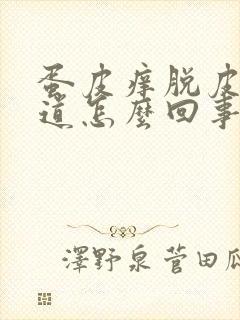 蛋皮痒脱皮
道怎麼回事
澤野泉菅田瓜